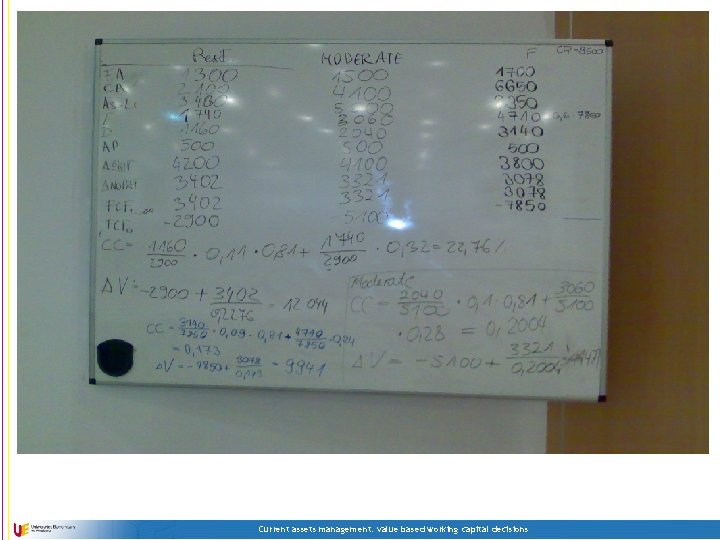 Rest. MODERATE F CR=9500
FA 1300 1500 1700
CA 2100 4100 6650
As=Li 3400 5600 8350
E 1740 3060 4710 0,6·7850
D 1160 2040 3140
AP 500 500 500
ΔEBIT 4200 4100 3800
ΔNOPAT 3402 3321 3078
FCF1...∞ 3402 3321 3078
FCF0 -2900 -5100 -7850
CC= 1160/2900 · 0,11 · 0,81 + 1740/2900 · 0,32 = 22,76%
ΔV= -2900 + 3402/0,2276 = 12 044
CC = 3140/7850 · 0,09 · 0,81 + 4710/7850 · 0,24
= 0,173
ΔV = -7850 + 3078/0,173 = 9941
Moderate
CC = 2040/5100 · 0,1 · 0,81 + 3060/5100
· 0,28 = 0,2004
ΔV = -5100 + 3321/0,2004
Uniwersytet Ekonomiczny
we Wrocławiu
Current assets management. Value based working capital decisions